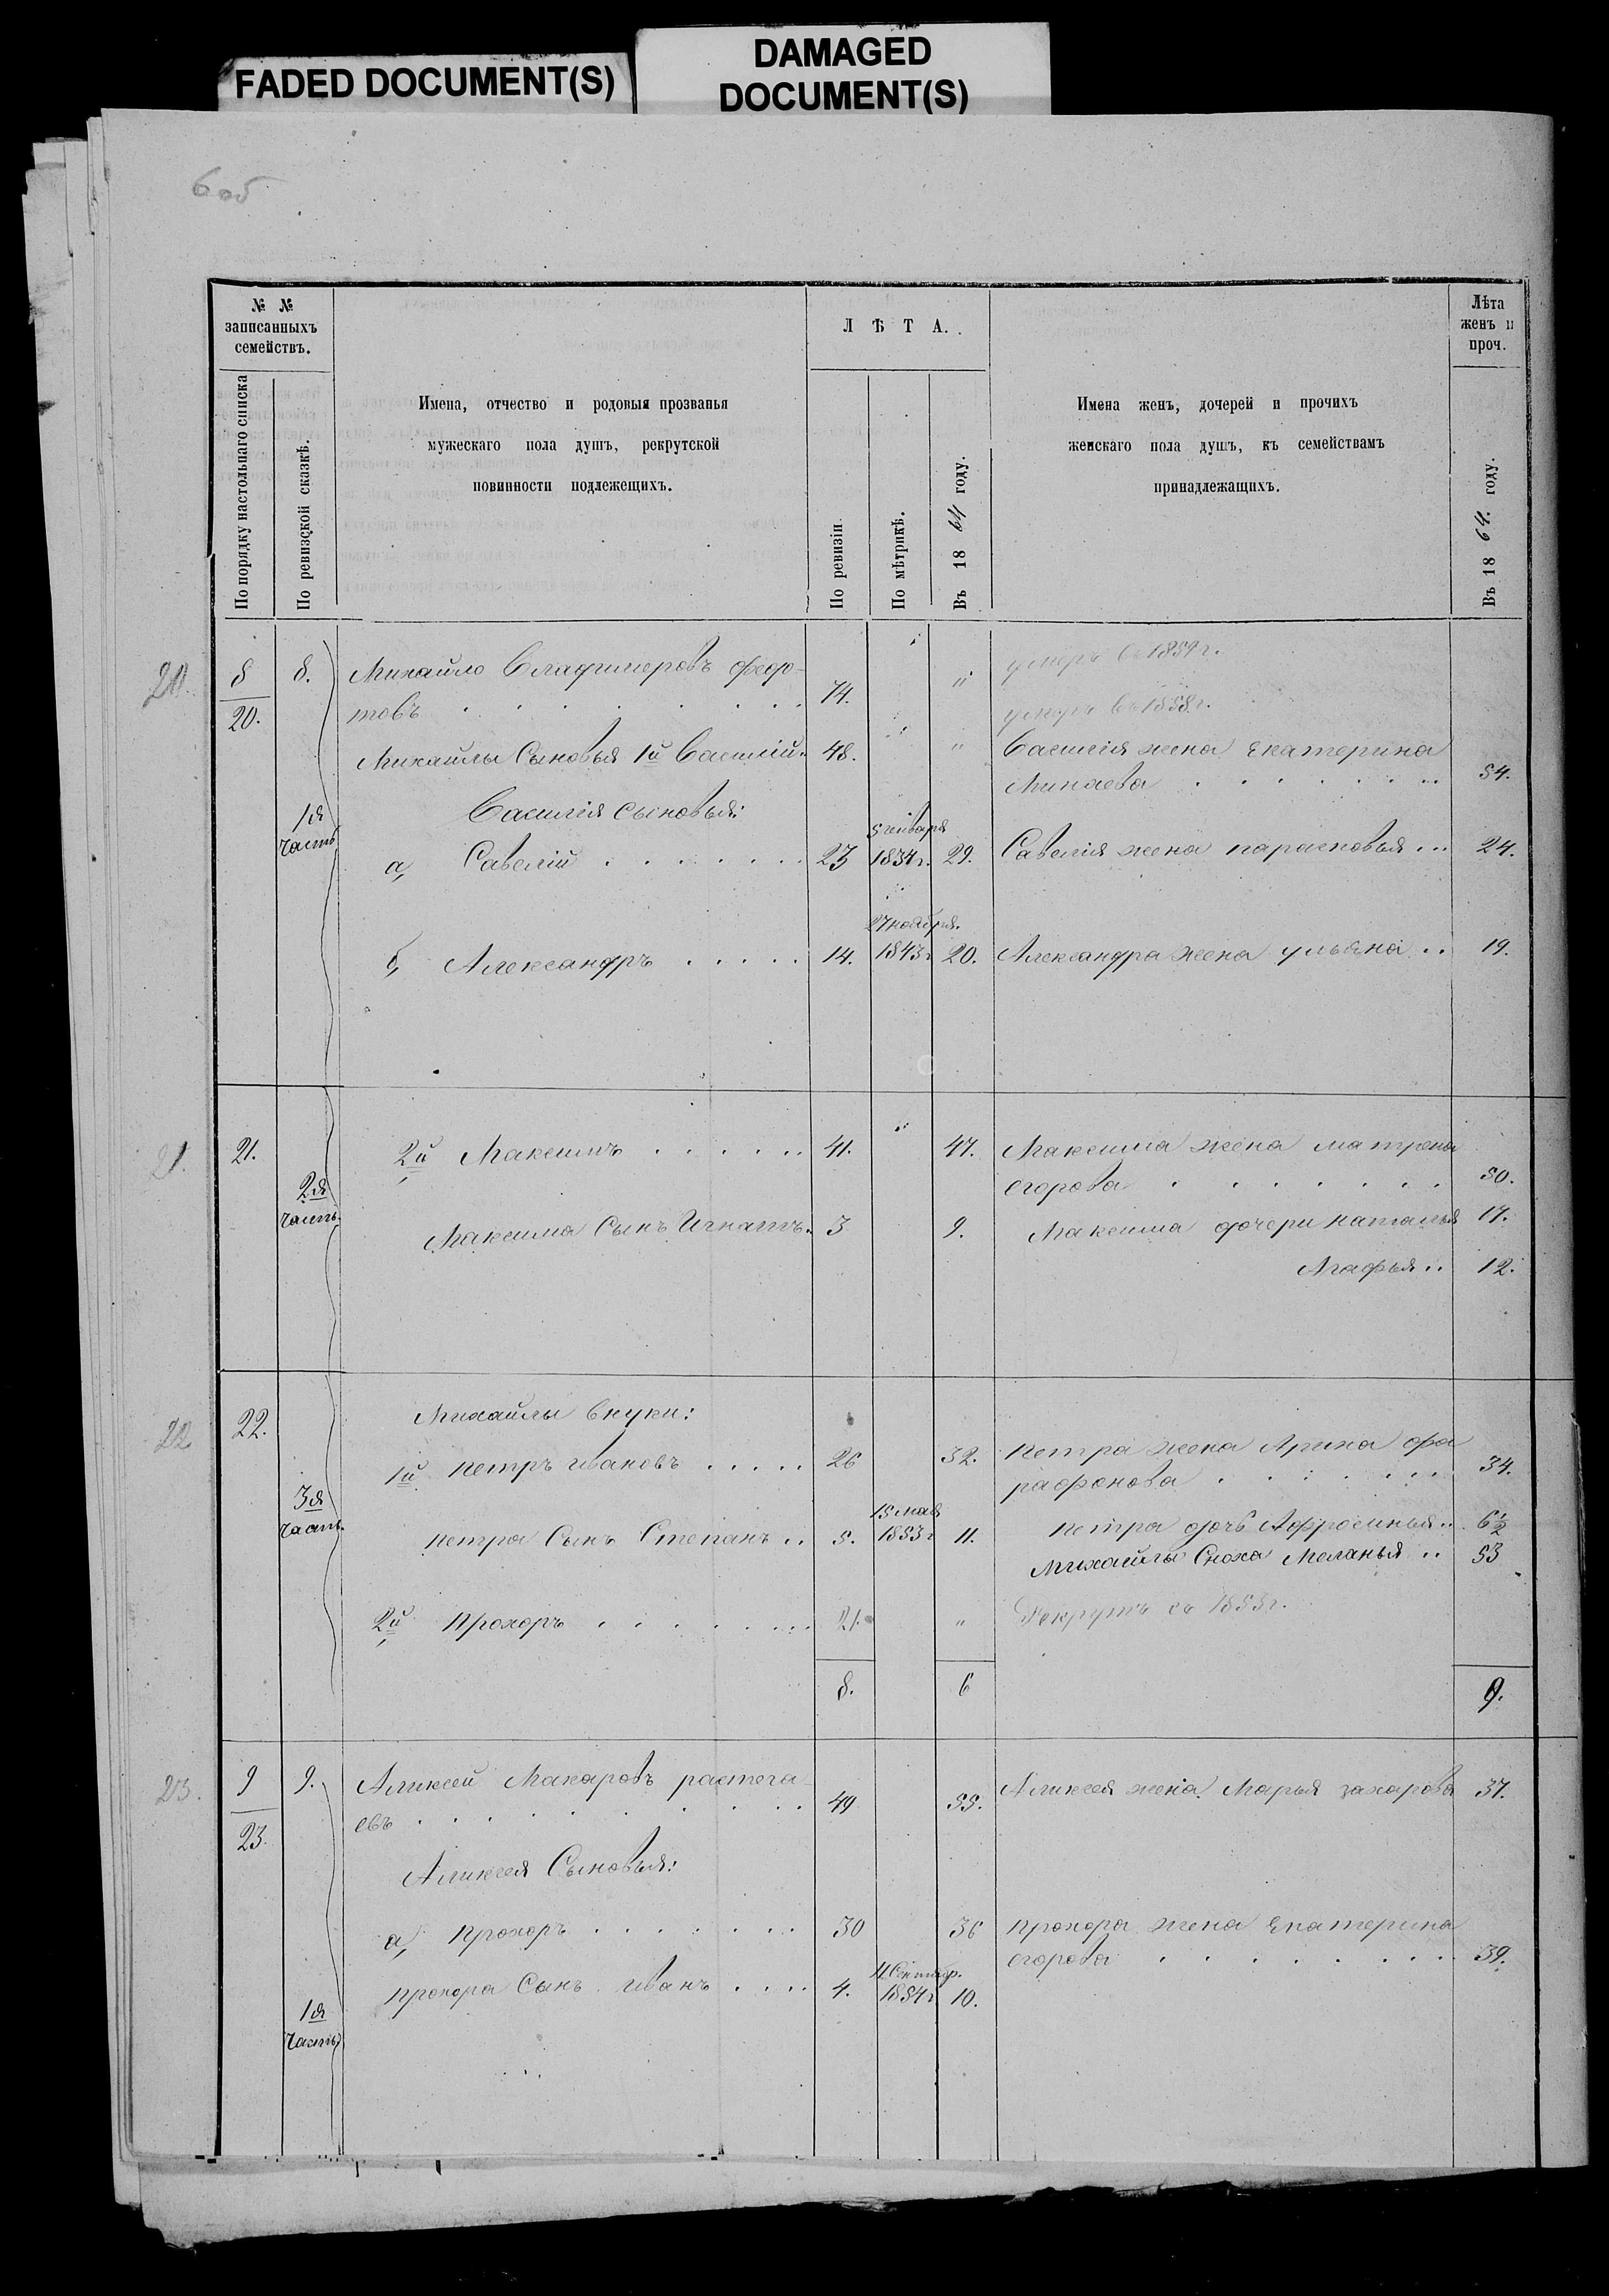 FADED DOCUMENT(S)
DAMAGED
DOCUMENT(S)
6 об
№ №
записанныхъ
семействъ.
По порядку настольнаго списка
По ревизской сказкѣ.
Имена, отчество и родовыя прозванья
мужескаго пола душъ, рекрутской
повинности подлежещихъ.
Л Ѣ Т А.
По ревизіи
По мѣтрикѣ.
Въ 18 64 году.
Имена женъ, дочерей и прочихъ
женскаго пола душъ, къ семействамъ
принадлежащихъ.
Лѣта
женъ и
проч.
Въ 18 64. году.
20. 8 8. Михайло Владимеровъ федо- 74. " умеръ въ 1859 г.
20. товъ умеръ въ 1858 г.
Михайлы Сыновья 1й Василій 48. " Василія жена Екатерина
Минаева 54.
Василія сыновья:
1я
часть
5 генваря
а, Савелій 23 1834 г. 29. Савелія жена парасковья 24.
27 ноября
б, Александръ 14. 1843 г 20. Александра жена ульяна 19.
21. 21. 2й Максимъ 41. " 47. Максима жена матрена
егорова 50.
2я
часть.
Максима Сынъ Игнатъ 3 9. Максима дочери наталья 17.
Агафья 12.
22 22. Михайлы внуки:
1й петръ ивановъ 26 32. петра жена Арина фа
рафонова 34.
3я
часть.
15 мая
петра Сынъ Степанъ 5. 1853 г 11. петра дочь Афросинья 6½
Михайлы Сноха Меланья 53
2й Прохоръ 21. " Рекрутъ съ 1853 г.
8. 6 9.
23. 9 9. Аликсей Макаровъ растега-
23. евъ 49 55. Аликсея жена Марья захарова 37.
Аликсея Сыновья:
а, прохоръ 30 36 прохора жена Екатерина
егорова 39.
4 Сентябр.
прохора Сынъ иванъ 4. 1854 г 10.
1я
часть